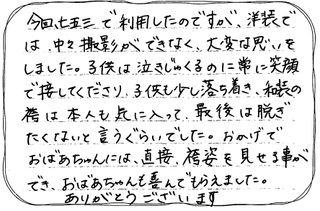 今回、七五三で利用したのですが、洋装で
は、中々撮影ができなく、大変な思いを
しました。子供は泣きじゃくるのに常に笑顔
で接してくださり、子供も少し落ち着き、和装の
袴は本人も気に入って、最後は脱ぎ
たくないと言うぐらいでした。おかげで
おばあちゃんには、直接、袴姿を見せる事が
でき、おばあちゃんも喜んでもらえました。
ありがとうございます